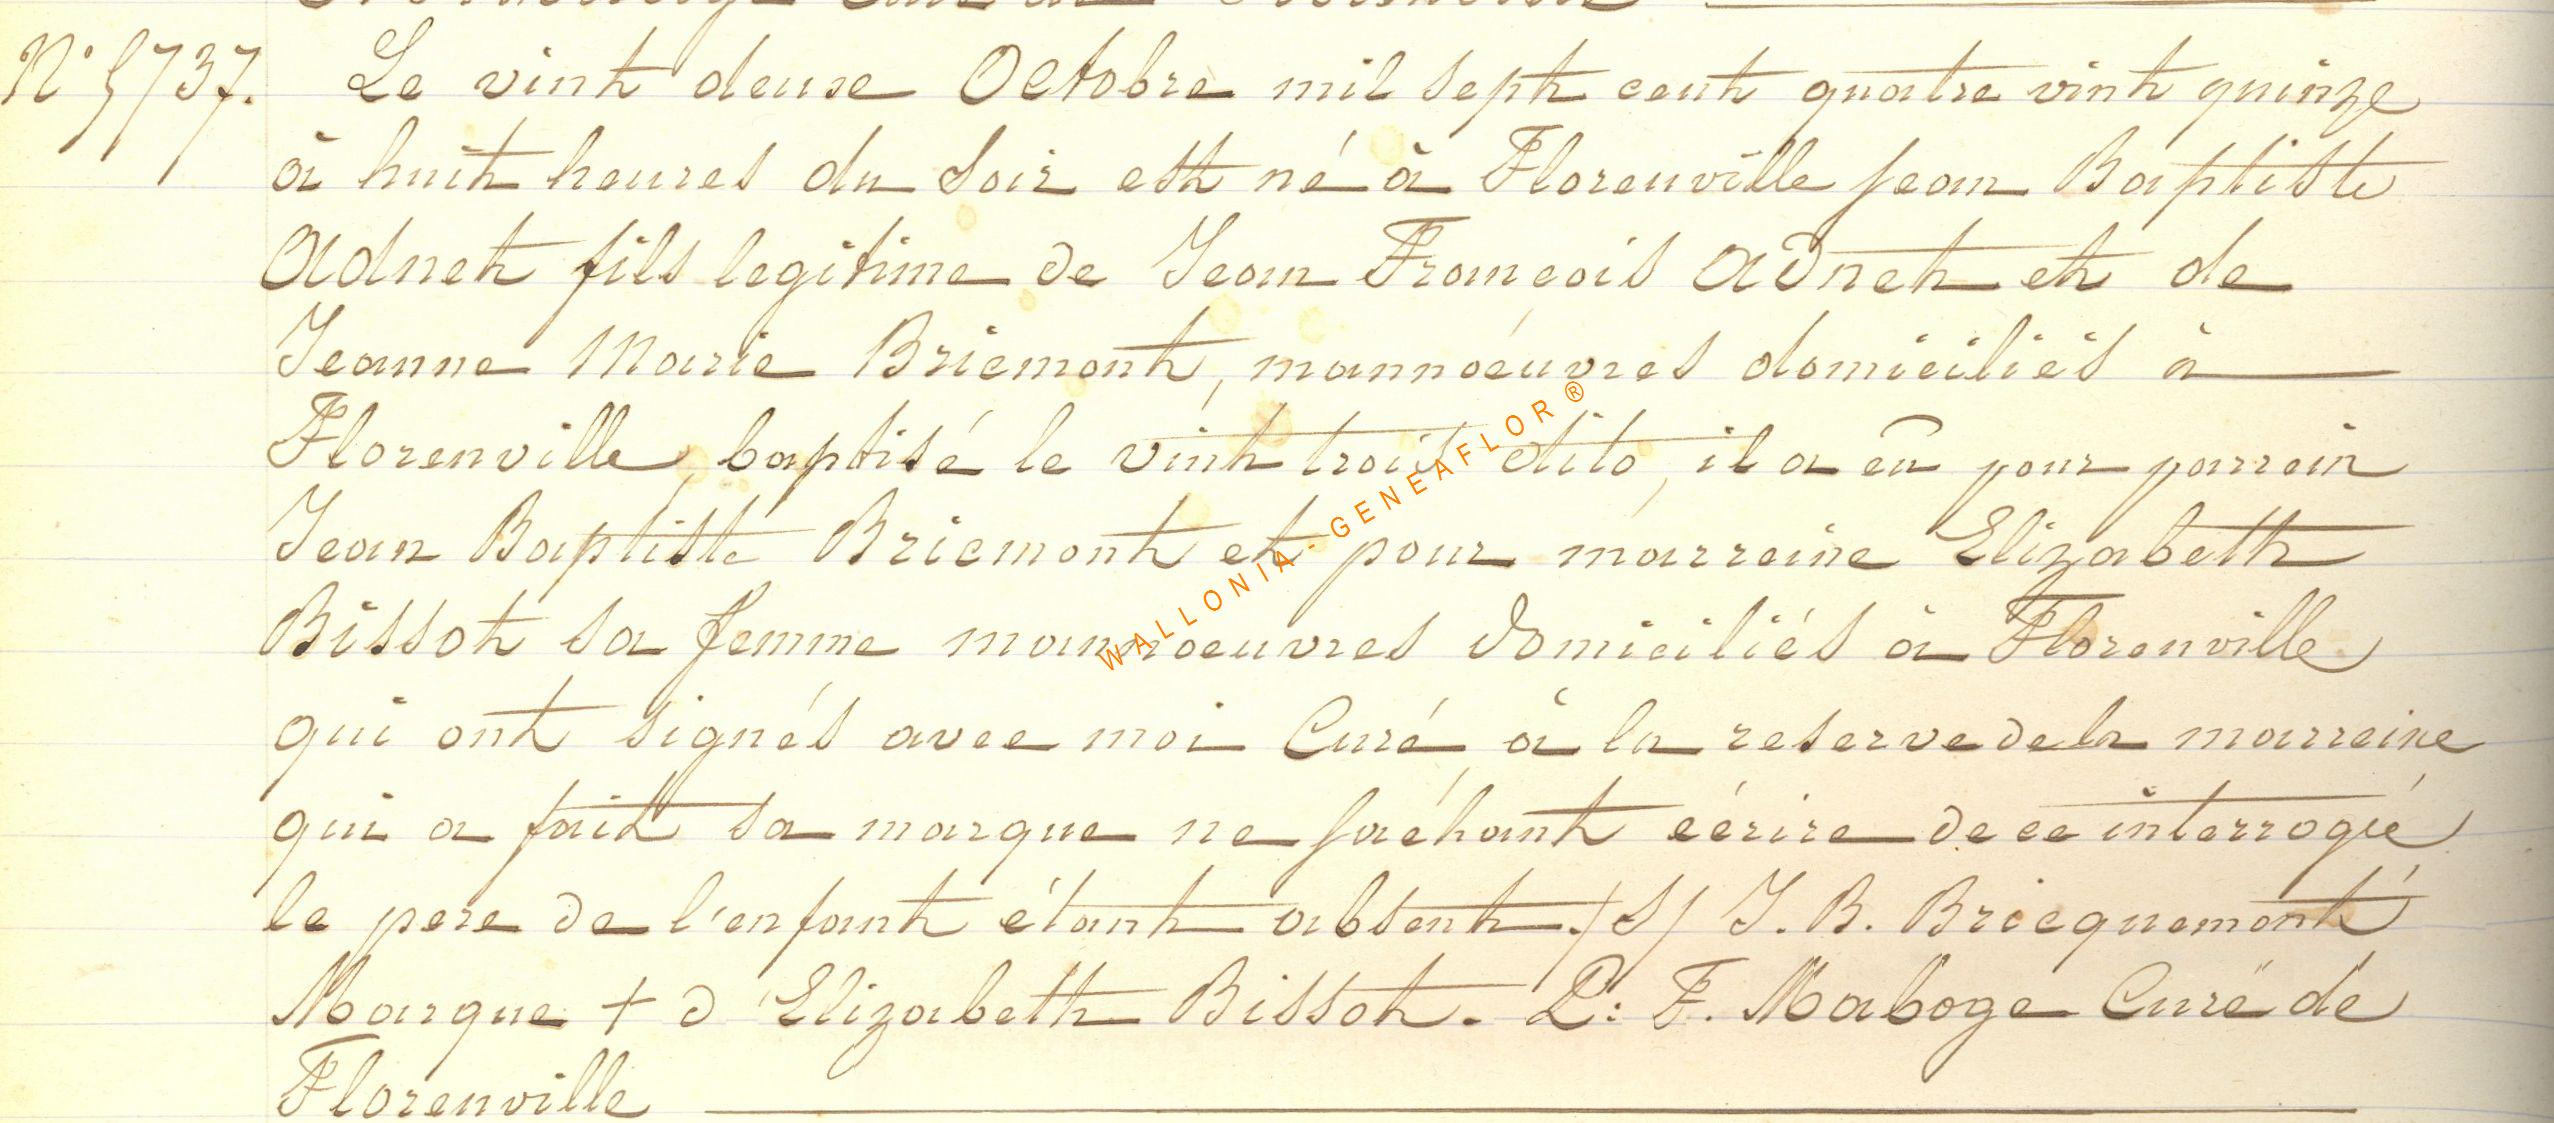 N° 5737. Le vint deuse Octobre mil sept cent quatre vint quinze
à huit heures du soir est né à Florenville Jean Baptiste
Adnet fils legitime de Jean François Adnet et de
Jeanne Marie Bricmont, mannoeuvres domiciliés à
Florenville, baptisé le vint trois dito, il a eu pour parrain
Jean Baptiste Bricmont et pour marreine Elizabeth
Bissot sa femme mannoeuvres domiciliés à Florenville
qui ont signés avec moi Curé à la reserve de la marreine
qui a fait sa marque ne sachant écrire de ce interrogé
le pere de l'enfant étant absent. /S/ J. B. Bricquemont
Marque + d'Elizabeth Bissot. L: F. Maboge Curé de
Florenville
WALLONIA-GENEAFLOR®